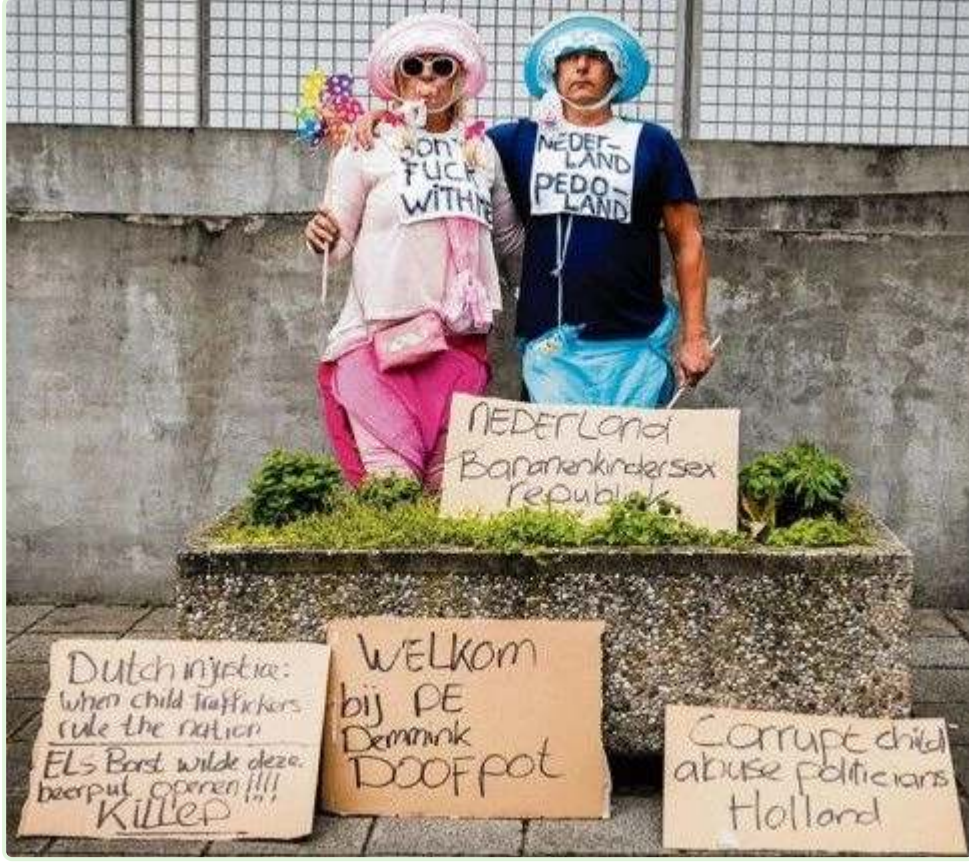 DON'T
FUCK
WITH ME
NEDER-
LAND
PEDO-
LAND
NEDERLAND
Bananenkindersex
republiek
Dutch injustice:
when child traffickers
rule the nation
ELs Borst wilde deze
beerput openen!!!
KILLED
WELKOM
bij DE
Demmink
DOOFpot
Corrupt child
abuse politicians
Holland